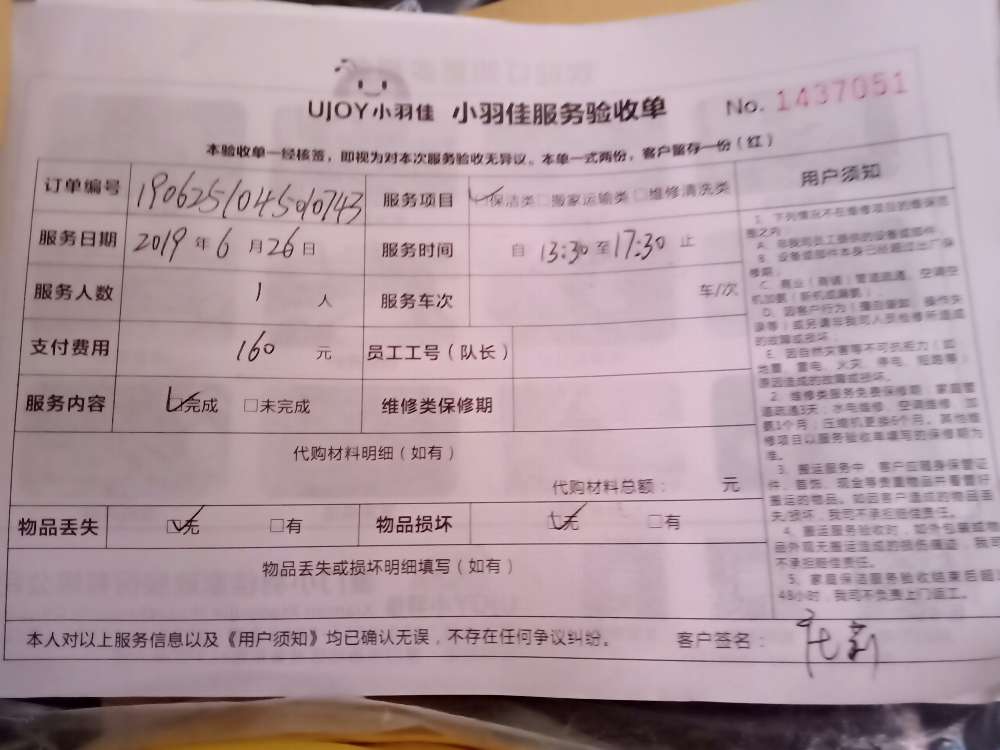 UJOY小羽佳 小羽佳服务验收单 No. 1437051
本验收单一经核签，即视为对本次服务验收无异议。本单一式两份，客户留存一份（红）
订单编号 1906251045010743 服务项目 保洁类□搬家运输类□维修清洗类
服务日期 2019年6月26日 服务时间 自 13:30 至 17:30 止
服务人数 1 人 服务车次 车/次
支付费用 160 元 员工工号（队长）
服务内容 □完成 □未完成 维修类保修期
代购材料明细（如有）
代购材料总额： 元
物品丢失 □无 □有 物品损坏 □无 □有
物品丢失或损坏明细填写（如有）
本人对以上服务信息以及《用户须知》均已确认无误，不存在任何争议纠纷。 客户签名：
用户须知
1、下列情况不在维修项目的维保范
围之内：
A、非我司员工提供的设备或部件。
B、设备或部件本身已经超过出厂保
修期；
C、商业（商铺）管道疏通、空调空
机加氨（新机或漏氨）
D、因客户行为（擅自拆卸、操作失
误等）或另请非我司人员检修所造成
的故障或损坏；
E、因自然灾害等不可抗拒力（如
地震、雷电、火灾、停电、短路等）
原因造成的故障或损坏。
2、维修类服务免费保修期：家庭管
道疏通3天；水电维修、空调维修、加
氨1个月；压缩机更换6个月。其他维
修项目以服务验收单填写的保修期为
准。
3、搬运服务中，客户应随身保管证
件、首饰、现金等贵重物品并看管好
搬运的物品。如因客户造成的物品丢
失/损坏，我司不承担赔偿责任。
4、搬运服务验收时，如外包装或物
品外观无搬运造成的损伤痕迹，我司
不承担赔偿责任。
5、家庭保洁服务验收结束后超过
48小时，我司不负责上门返工。